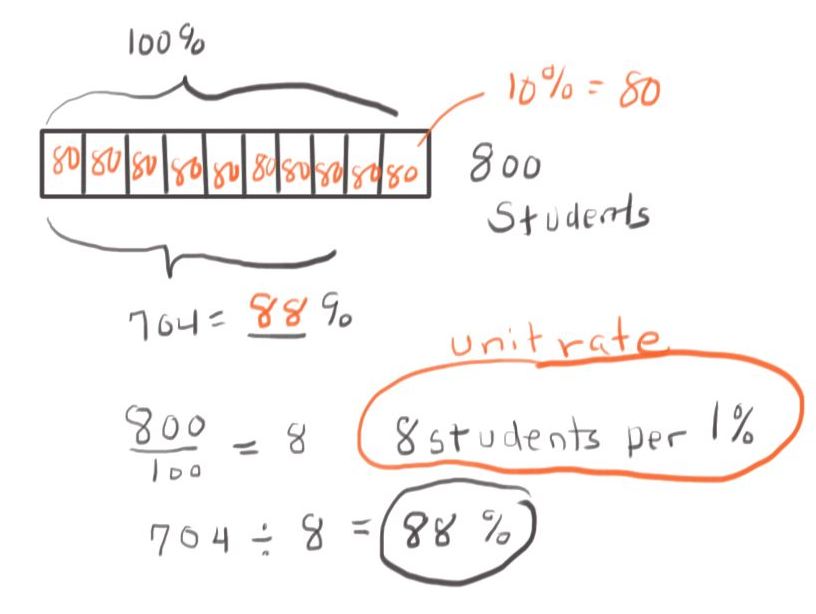 100%
10% = 80
80 80 80 80 80 80 80 80 80 80
800
Students
704 = 88 %
unit rate
800
100
= 8
8 students per 1%
704 ÷ 8 = 88 %